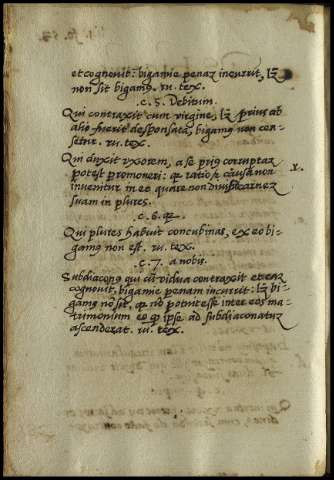 et cognouit: bigamie penaz incurrit, lz
non sit bigamꝰ. vi. tex.
.c. 5. Debitum.
Qui contraxit cum virgine, lz prius ab
alio fuerit desponsata, bigamꝰ non cen-
setur. vi. tex.
Qui duxit vxorem, a se priꝰ corruptaz
potest promoueri: qr ratio causa non
inuenitur in eo quare non diuisit carnez
suam in plures.
.c. 6. qr
Qui plures habuit concubinas, ex eo bi-
gamꝰ non est. vi. tex.
.c. 7. a nobis.
Subdiaconꝰ qui cũ vidua contraxit et eaz
cognouit, bigamie penam incurrit: lz bi-
gamꝰ nõ sit, qr nõ potuit esse inter eos ma-
trimonium eo qr ipse ad subdiaconatuz
ascenderat. vi. tex.